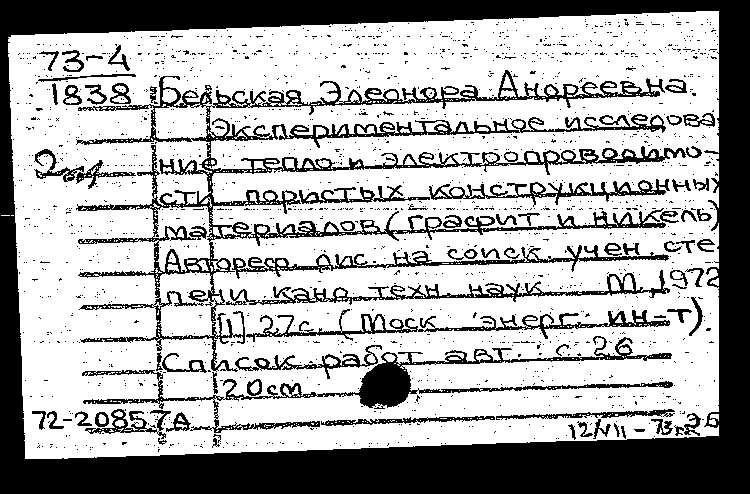 73-4
1838 Бельская, Элеонора Андреевна.
Экспериментальное исследова
2 экз
ние тепло и электропроводимо-
сти пористых конструкционных
материалов (графит и никель)
Автореф. дис. на соиск. учен. сте
пени канд. техн. наук. М., 1972
[1], 27с. (Моск. энерг. ин-т).
Список работ авт.: с. 26
20см.
72-20857А
12/VII-73г. ЭБ